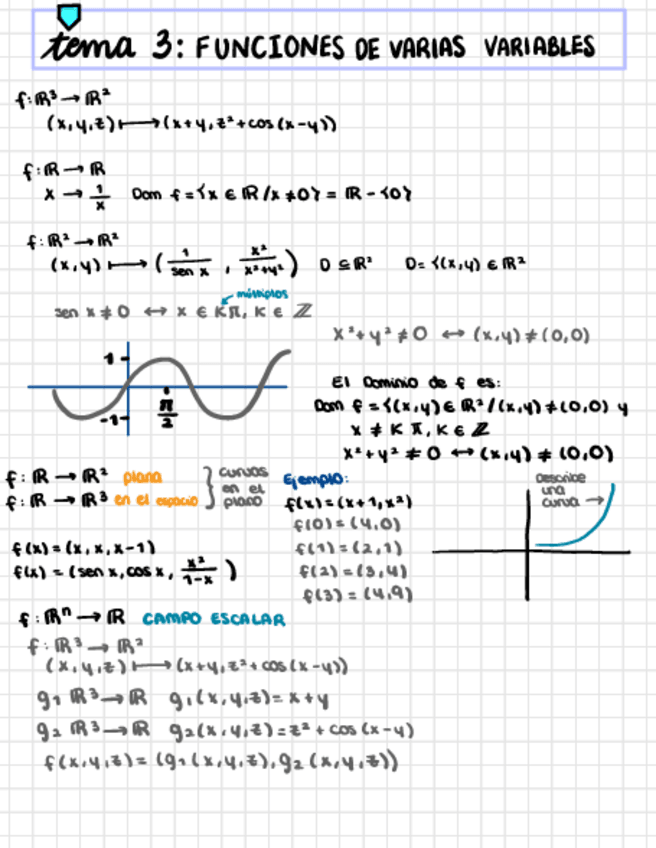 tema 3: FUNCIONES DE VARIAS VARIABLES
f: ℝ³ → ℝ²
(x,y,z) ↦ (x+y, z²+cos(x-y))
f: ℝ → ℝ
x → 1/x Dom f = {x ∈ ℝ / x ≠ 0} = ℝ - {0}
f: ℝ² → ℝ²
(x,y) ↦ (1/sen x, x²/x²+y²) D ⊆ ℝ² D= {(x,y) ∈ ℝ²
múltiplos
sen x ≠ 0 ↔ x ∈ Kπ, K ∈ ℤ
x²+y² ≠ 0 ↔ (x,y) ≠ (0,0)
1
-1
π/2
El Dominio de f es:
Dom f = {(x,y) ∈ ℝ² / (x,y) ≠ (0,0) y
x ≠ K π, K ∈ ℤ
x²+y² ≠ 0 ↔ (x,y) ≠ (0,0)
f: ℝ → ℝ² plana
f: ℝ → ℝ³ en el espacio
} curvas
en el
plano
f(x) = (x, x, x-1)
f(x) = (sen x, cos x, x²/1-x)
Ejemplo:
f(x) = (x+1, x²)
f(0) = (1,0)
f(1) = (2,1)
f(2) = (3,4)
f(3) = (4,9)
Describe
una
curva →
f: ℝⁿ → ℝ CAMPO ESCALAR
f: ℝ³ → ℝ²
(x,y,z) ↦ (x+y, z²+cos(x-y))
g₁ ℝ³ → ℝ g₁(x,y,z) = x+y
g₂ ℝ³ → ℝ g₂(x,y,z) = z² + cos(x-y)
f(x,y,z) = (g₁(x,y,z), g₂(x,y,z))